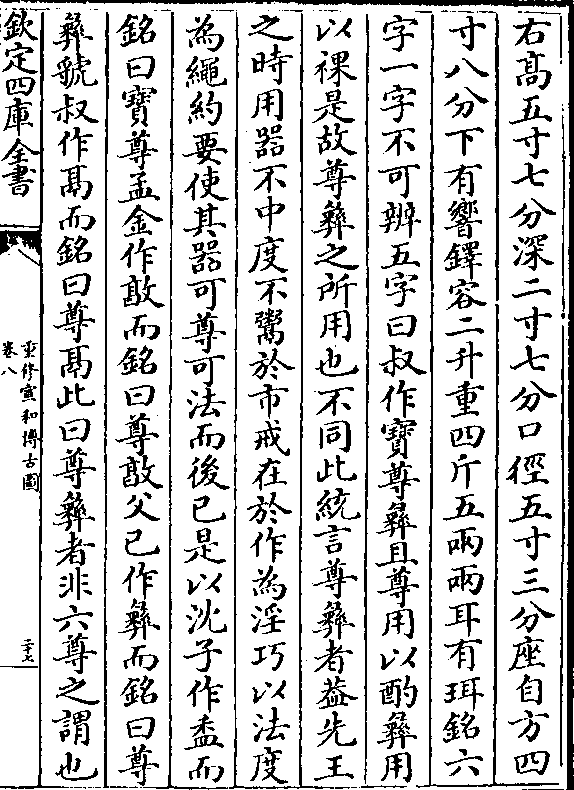 右髙五寸七分深二寸七分口徑五寸三分座自方四
寸八分下有響鐸容二升重四斤五兩兩耳有珥銘六
字一字不可辨五字曰叔作寶尊彞且尊用以酌彞用
以祼是故尊彞之所用也不同此統言尊彞者葢先王
之時用器不中度不鬻於市戒在於作為淫巧以法度
為繩約要使其器可尊可法而後已是以沈子作盉而
銘曰寶尊盂金作敦而銘曰尊敦父己作彞而銘曰尊
彞虢叔作鬲而銘曰尊鬲此曰尊彞者非六尊之謂也
欽定四庫全書
重修宣和博古圖
卷八
二十七